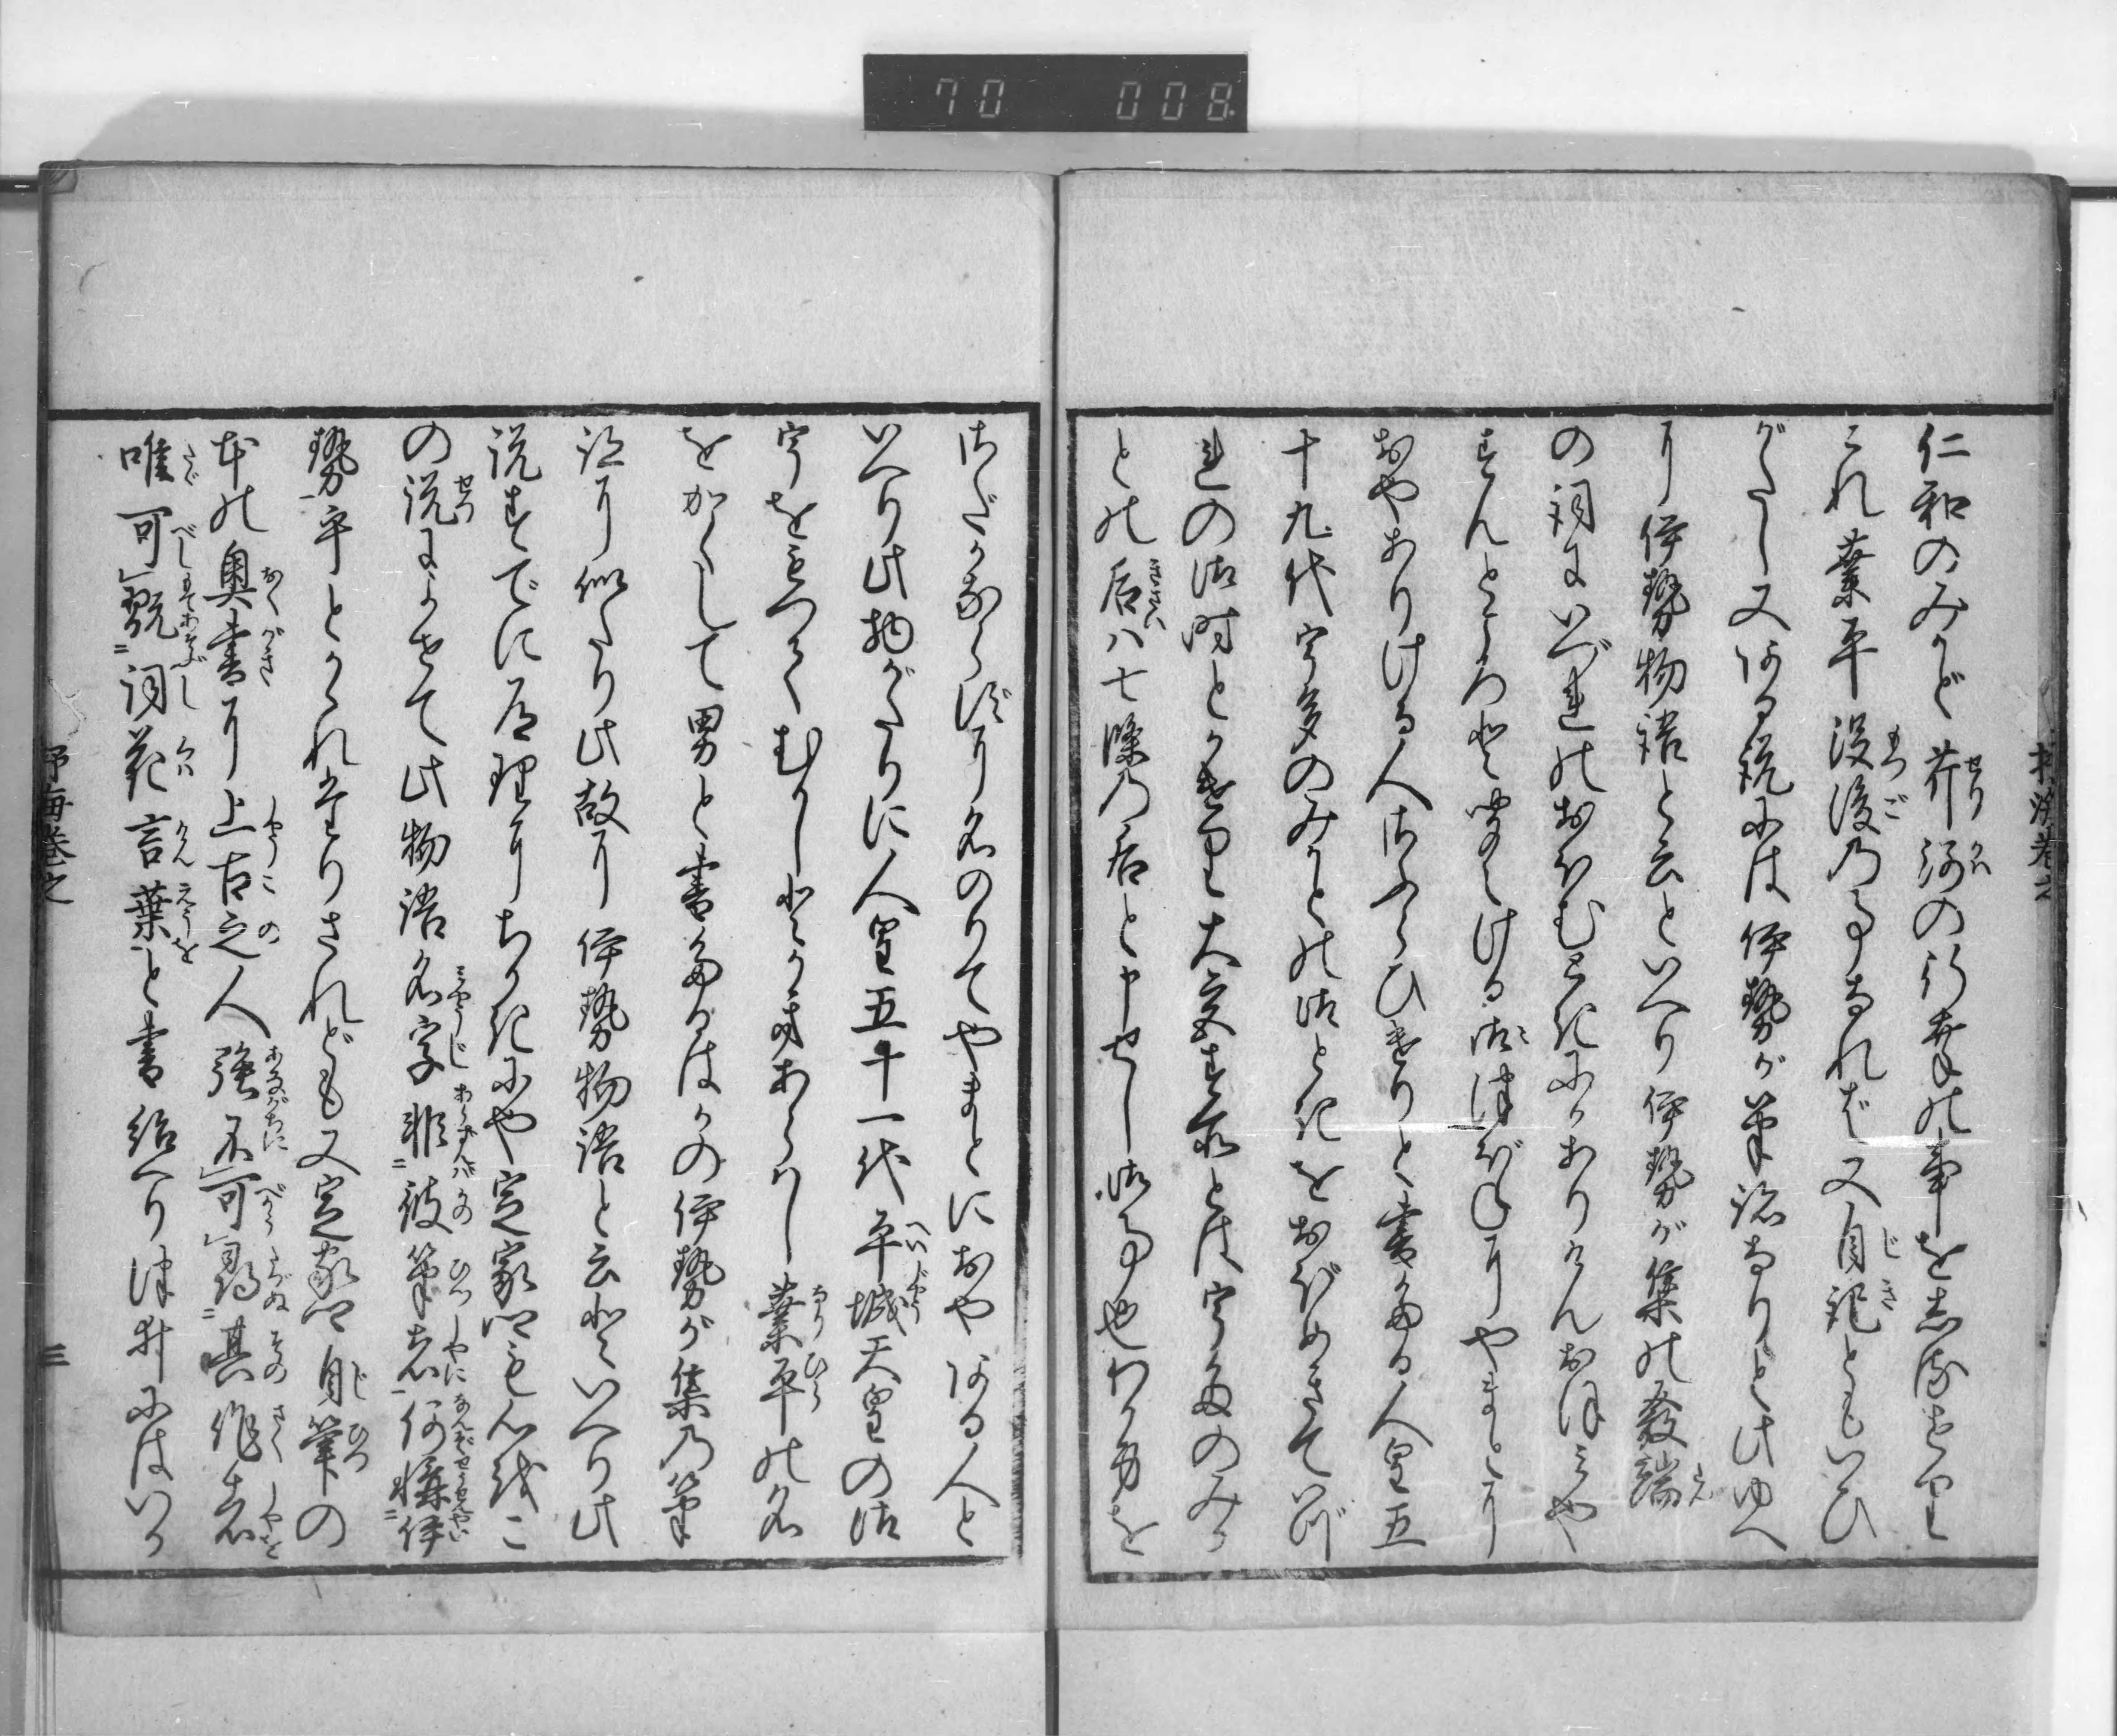 70 008
仁和のみかど芹河の行幸の事をしるせり
これ業平没後の事なれば又自記ともいひ
がたし又ある説には伊勢が筆記なりと此ゆへ
に伊勢物語と云といへり伊勢が集の発端
の詞にいづれのおほむ時にかありけんおほみや
すんどころと聞えける御つぼねにやまとに
おやありける人さふらひけりと書たる人皇五
十九代宇多のみかどの御ときをおぼめきていづ
れの御時とかけり大宮す所とは宇多のみか
どの后八七条の后と申せし御事也わが身を
さだかならずに名のりてやまとにおやある人と
いへり此物がたりに人皇五十一代平城天皇の御
をかくして男と書たるはかの伊勢が集の筆
記に似たり此故に伊勢物語と云といへり此
説すでに道理にちかきにや定家卿も心はこ
の説によせて此物語名字非彼筆者何構伊
勢乎とかかれたりされども又定家卿自筆の
本の奥書に上古之人強不可尋其作者
唯可翫詞花言葉と書給へり
三